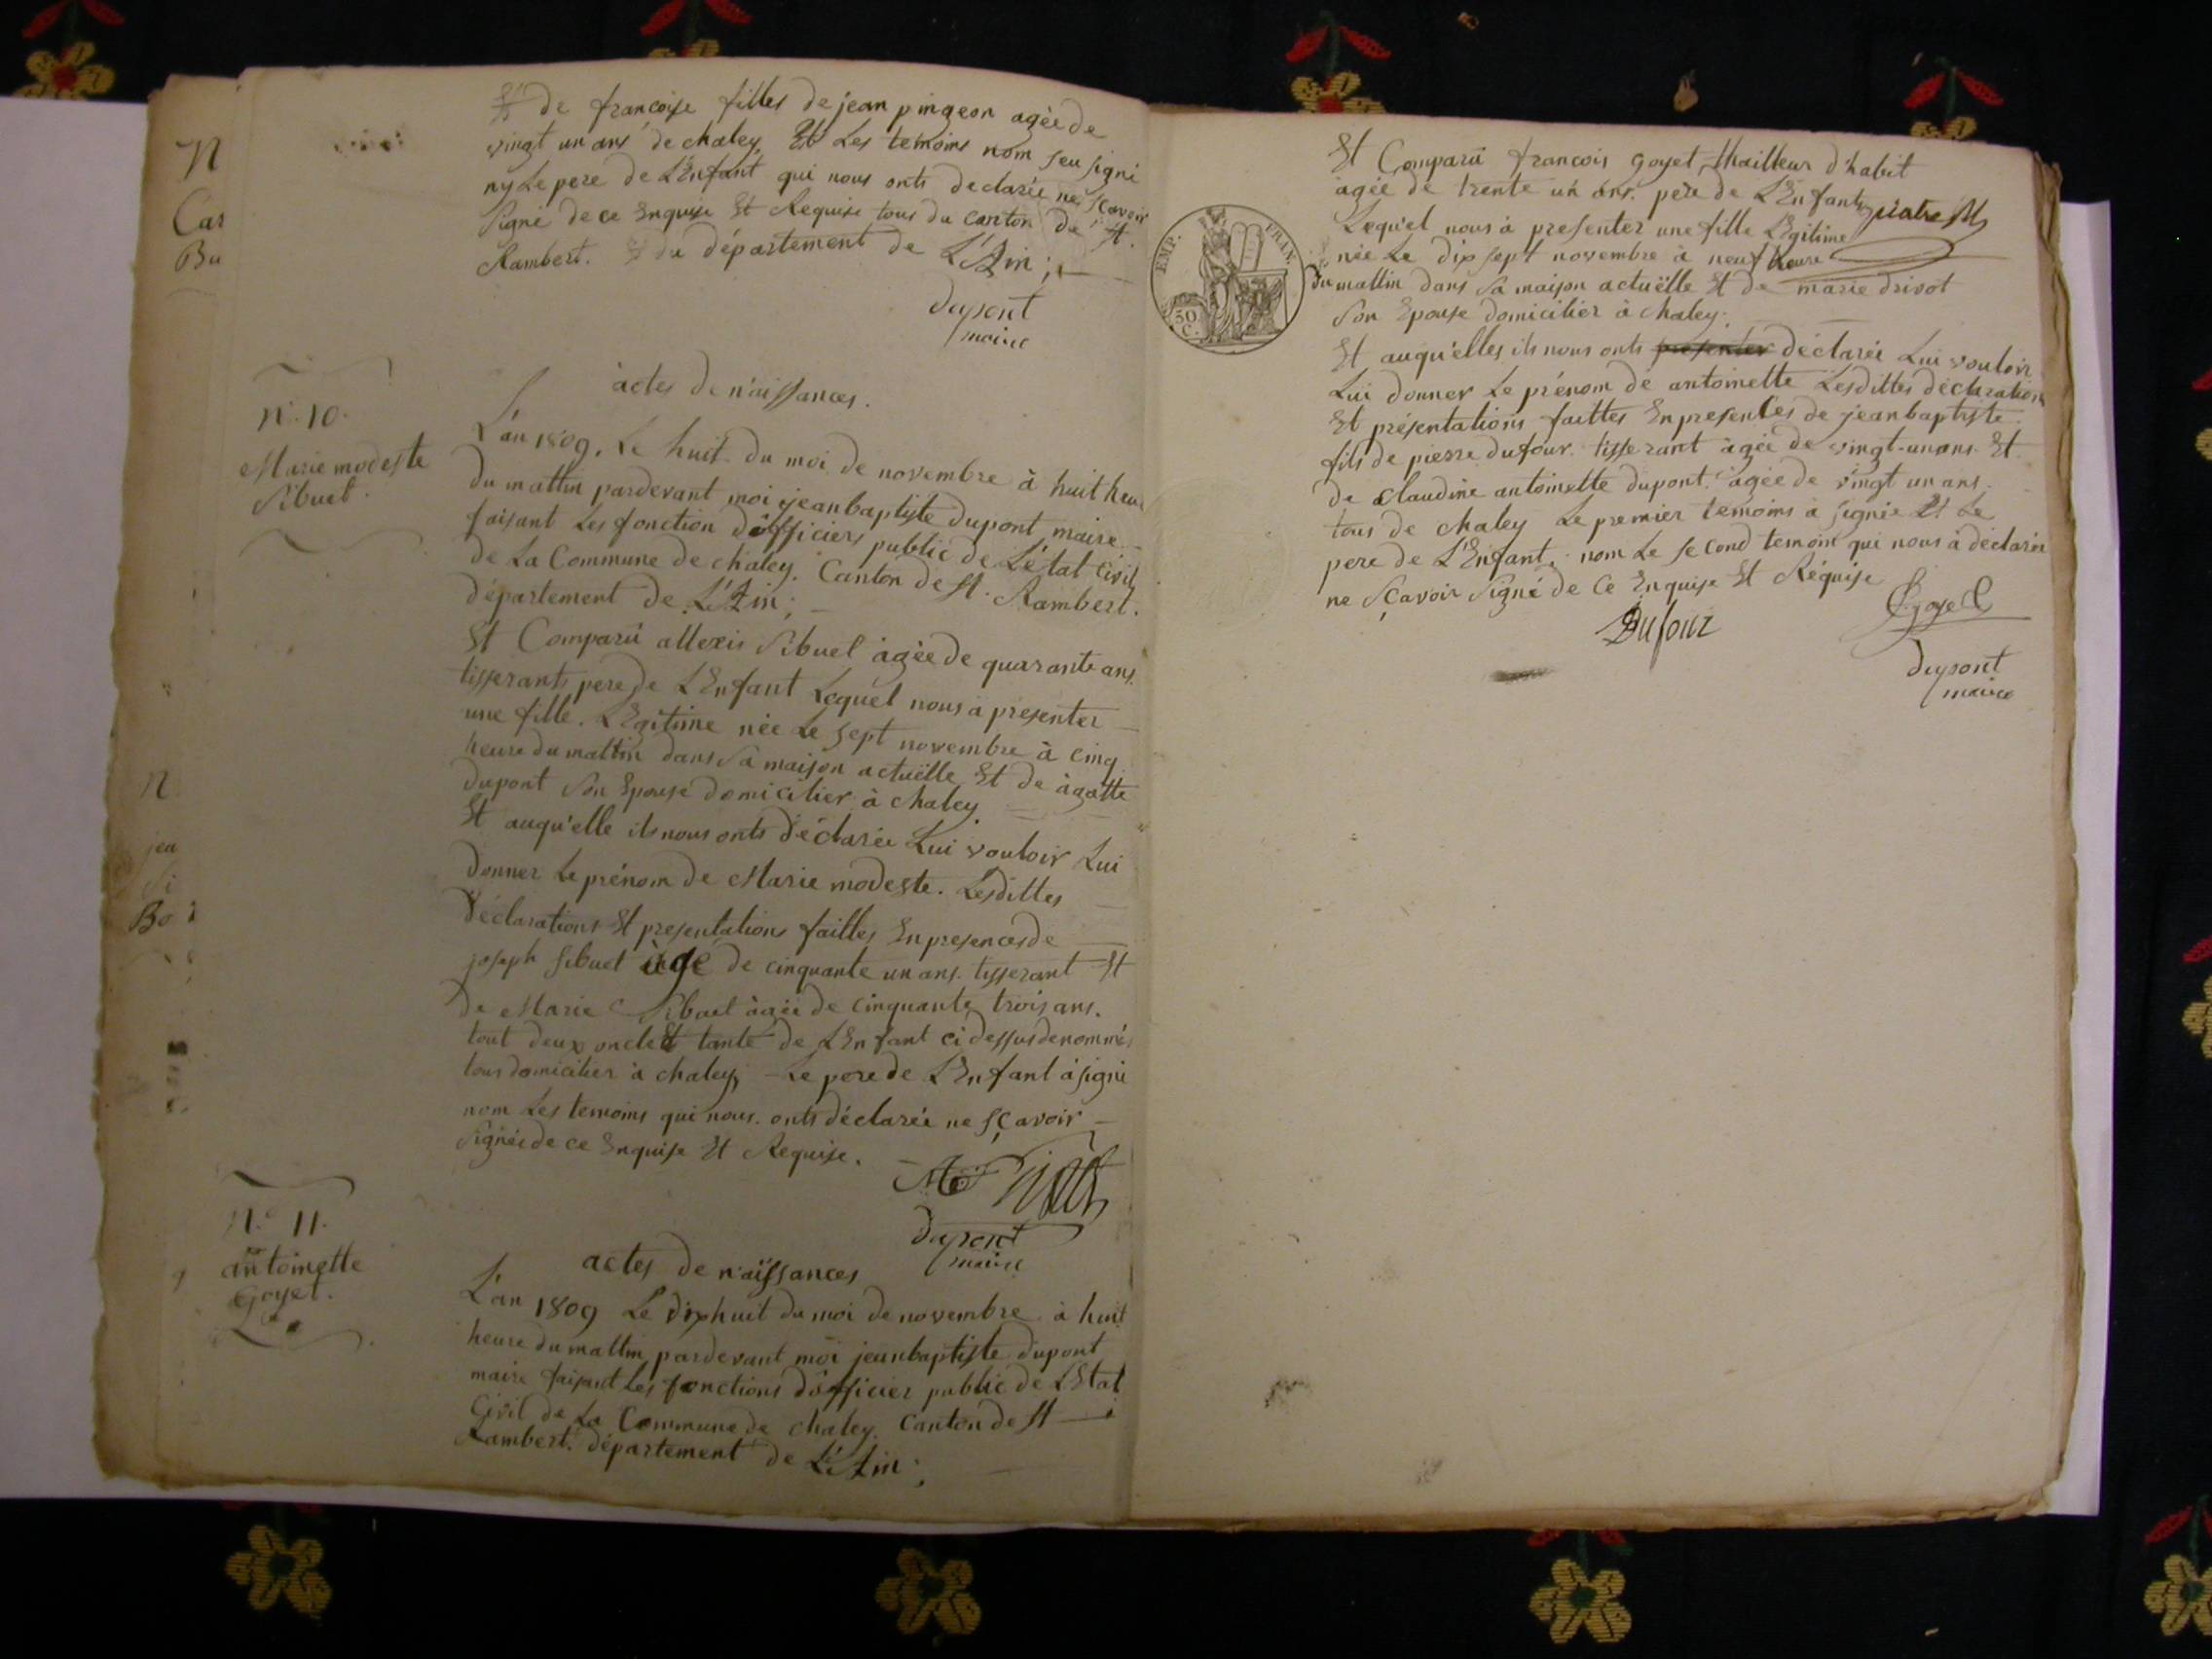 Et de francoise filles de jean pingeon agée de
vingt un ans de chaley, Et Les temoins nom seu signé
ny Le pere de L'Enfant qui nous onts declarée ne sçavoir
signé de ce Enquise Et Requise tous du canton de St.
Rambert. du département de L'Ain ;
dupont
maire
actes de n'aissances.
N.o 10.
Marie modeste
Sibuet.
L'an 1809. Le huit du moi de novembre à huit heur
du mattin pardevant moi jeanbaptiste dupont maire
faisant Les fonction d'officiers public de L'état civil
de La Commune de chaley. Canton de St. Rambert.
département de L'Ain ;
Et Comparû allexis Sibuet àgée de quarante ans.
tisserants pere de L'Enfant Lequel nous à presenter
une fille. LEgitime née Le sept novembre à cinq
heure du mattin dans Sa maison actuëlle Et de àgatte
dupont Son Epouse domicilier à chaley.
Et auqu'elle ils nous onts déclarée Lui vouloir Lui
donner Le prénom de Marie modeste. Lesdittes
déclarations Et presentations faittes En presences de
joseph Sibuet àgé de cinquante un ans. tisserant Et
de Marie Sibuet àgée de cinquante trois ans.
tout deux oncle Et tante de L'Enfant ci dessus denommés
tous domicilier à chaley, Le pere de L'Enfant à signé
nom Les temoins qui nous onts déclarée ne sçavoir
signée de ce Enquise Et Requise.
dupont
maire
N.o 11.
antoinette
Goyet.
actes de n'aissances
L'an 1809 Le dixhuit du moi de novembre à huit
heure du mattin pardevant moi jeanbaptiste dupont
maire faisant Les fonctions d'officier public de L'Etat
Civil de La Commune de chaley. Canton de St
Rambert. département de L'Ain ;
EMP. FRAN.
50 C.
Et Comparû francois goyet, thailleur d'habit
àgée de trente un ans. père de L'Enfant
Lequ'el nous à presenter une fille LEgitime
née Le dix sept novembre à neuf heure
du mattin dans Sa maison actuëlle Et de marie drivot
Son Epouse domicilier à chaley.
Et auqu'elles ils nous onts presenter déclarée Lui vouloir
Lui donner Le prénom de antoinette Lesdittes déclarations
Et présentations faittes En presentes de jeanbaptiste
fils de pierre dufour. tisserant àgée de vingt-un ans. Et
de claudine antoinette dupont. àgée de vingt un ans.
tous de chaley Le premier temoins à signée Et Le
pere de L'Enfant, nom Le second temoin qui nous à déclarée
ne sçavoir signé de Ce Enquise Et Réquise
Dufour
Goyet
dupont
maire